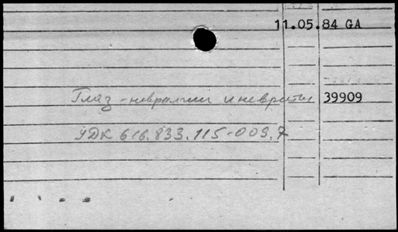 11.05.84 GA
Глаз - невралгии и невриты 39909
УДК 616.833.115-009.7